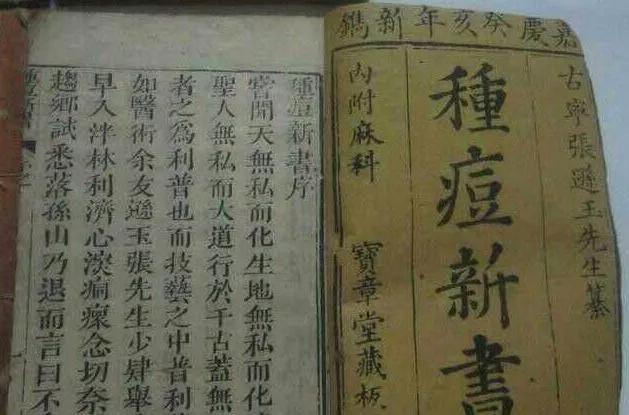 嘉慶癸亥年新鐫
古寧張遜玉先生纂
種痘新書
內附麻科
寶章堂藏板
種痘新書序
嘗聞天無私而化生地無私而化
聖人無私而大道行於千古蓋無
者之為利普也而技藝之中普利
如醫術余友遜玉張先生少肄舉
早入泮林利濟心深痌瘝念切奈
趨鄉試悉落孫山乃退而言曰不